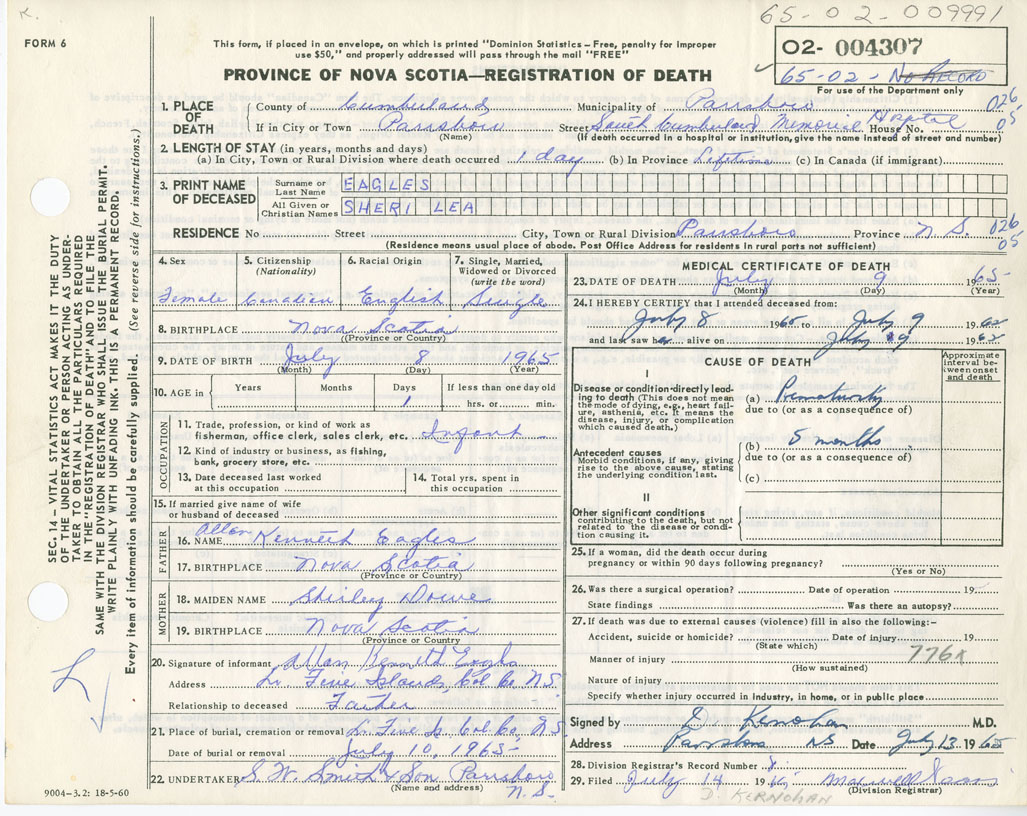 K.
65-02-009991
FORM 6
This form, if placed in an envelope, on which is printed "Dominion Statistics – Free, penalty for improper
use $50," and properly addressed will pass through the mail "FREE"
02- 004307
65-02 - No RECORD
For use of the Department only
PROVINCE OF NOVA SCOTIA—REGISTRATION OF DEATH
1. PLACE OF DEATH
County of Cumberland Municipality of Parrsboro 026
If in City or Town Parrsboro Street South Cumberland Memorial Hospital House No. 05
(Name) (If death occurred in a hospital or institution, give the name instead of street and number)
2. LENGTH OF STAY (in years, months and days)
(a) In City, Town or Rural Division where death occurred 1 day (b) In Province Lifetime (c) In Canada (if immigrant)
3. PRINT NAME OF DECEASED
Surname or Last Name EAGLES
All Given or Christian Names SHERI LEA
RESIDENCE No Street City, Town or Rural Division Parrsboro Province N.S. 026
05
(Residence means usual place of abode. Post Office Address for residents in rural parts not sufficient)
4. Sex Female
5. Citizenship (Nationality) Canadian
6. Racial Origin English
7. Single, Married, Widowed or Divorced (write the word) Single
8. BIRTHPLACE Nova Scotia
(Province or Country)
9. DATE OF BIRTH July 8 1965
(Month) (Day) (Year)
10. AGE in Years Months Days If less than one day old
1 hrs. or min.
OCCUPATION
11. Trade, profession, or kind of work as
fisherman, office clerk, sales clerk, etc. Infant
12. Kind of industry or business, as fishing,
bank, grocery store, etc.
13. Date deceased last worked
at this occupation
14. Total yrs. spent in
this occupation
15. If married give name of wife
or husband of deceased
FATHER
16. NAME Allan Kenneth Eagles
17. BIRTHPLACE Nova Scotia
(Province or Country)
MOTHER
18. MAIDEN NAME Shirley Dowe
19. BIRTHPLACE Nova Scotia
(Province or Country)
20. Signature of informant Allan Kenneth Eagles
Address Lr. Five Islands, Col. Co. N.S.
Relationship to deceased Father
21. Place of burial, cremation or removal Lr. Five Is. Col. Co. N.S.
Date of burial or removal July 10, 1965
22. UNDERTAKER S. W. Smith & Son Parrsboro
(Name and address) N.S.
9004-3.2: 18-5-60
MEDICAL CERTIFICATE OF DEATH
23. DATE OF DEATH July 9 1965
(Month) (Day) (Year)
24. I HEREBY CERTIFY that I attended deceased from:
July 8 1965 to July 9 19
and last saw her alive on July 9 19
CAUSE OF DEATH
Approximate interval between onset and death
I
Disease or condition directly leading to death (This does not mean the mode of dying, e.g., heart failure, asthenia, etc. It means the disease, injury, or complication which caused death.)
(a) Prematurity
due to (or as a consequence of)
(b) 5 months
due to (or as a consequence of)
(c)
Antecedent causes
Morbid conditions, if any, giving rise to the above cause, stating the underlying condition last.
II
Other significant conditions
contributing to the death, but not related to the disease or condition causing it.
25. If a woman, did the death occur during
pregnancy or within 90 days following pregnancy?
(Yes or No)
26. Was there a surgical operation? Date of operation 19
State findings Was there an autopsy?
27. If death was due to external causes (violence) fill in also the following:-
Accident, suicide or homicide? Date of injury 19
(State which)
Manner of injury 776x
(How sustained)
Nature of injury
Specify whether injury occurred in industry, in home, or in public place
Signed by D. Kernohan M.D.
Address Parrsboro NS Date July 13 1965
28. Division Registrar's Record Number 8
29. Filed July 14 1965
(Division Registrar)
D. KERNOHAN
SEC. 14 - VITAL STATISTICS ACT MAKES IT THE DUTY
OF THE UNDERTAKER OR PERSON ACTING AS UNDER-
TAKER TO OBTAIN ALL THE PARTICULARS REQUIRED
IN THE "REGISTRATION OF DEATH" AND TO FILE THE
SAME WITH THE DIVISION REGISTRAR WHO SHALL ISSUE THE BURIAL PERMIT.
WRITE PLAINLY WITH UNFADING INK. THIS IS A PERMANENT RECORD.
Every item of information should be carefully supplied. (See reverse side for instructions.)